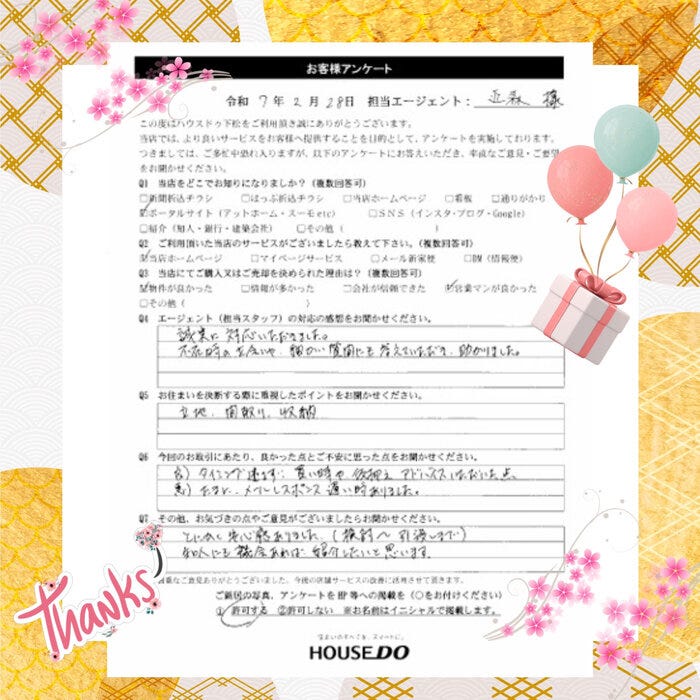 お客様アンケート
令和 7年 2月 28日 担当エージェント： 近森 様
この度はハウスドゥ下松をご利用頂き誠にありがとうございます。
当店では、より良いサービスをお客様へ提供することを目的として、アンケートを実施しております。
つきましては、ご多忙中恐れ入りますが、以下のアンケートにお答えいただき、率直なご意見・ご要望
をお聞かせください。
Q1 当店をどこでお知りになりましたか？（複数回答可）
□新聞折込チラシ □はっぷ折込チラシ □当店ホームページ □看板 □通りがかり
☑ポータルサイト（アットホーム・スーモetc） □SNS（インスタ・ブログ・Google）
□紹介（知人・銀行・建築会社） □その他（ ）
Q2 ご利用頂いた当店のサービスがございましたら教えて下さい。（複数回答可）
☑当店ホームページ □マイページサービス □メール新家便 □DM（情報便）
Q3 当店にてご購入又はご売却を決められた理由は？（複数回答可）
☑物件が良かった □情報が多かった □会社が信頼できた ☑営業マンが良かった
□その他（ ）
Q4 エージェント（担当スタッフ）の対応の感想をお聞かせください。
誠実に対応いただきました。
不在時の立会いや、細かい質問にも答えていただき、助かりました。
Q5 お住まいを決断する際に重視したポイントをお聞かせください。
立地、間取り、収納
Q6 今回のお取引にあたり、良かった点とご不安に思った点をお聞かせください。
良）タイミング逃さず、買い時や後押え アドバイスいただいた点。
悪）たまに、メールレスポンス遅い時ありました。
Q7 その他、お気づきの点やご意見がございましたらお聞かせください。
とにかく安心感ありました。（検討～引渡しまで）
知人にも機会あれば紹介したいと思います。
貴重なご意見ありがとうございました。今後の店舗サービスの改善に活用させて頂きます。
ご新居の写真、アンケートをHP等への掲載を（○をお付けください）
①許可する ②許可しない ※お名前はイニシャルで掲載します。
住まいのすべてを、スマートに。
HOUSE DO
Thanks